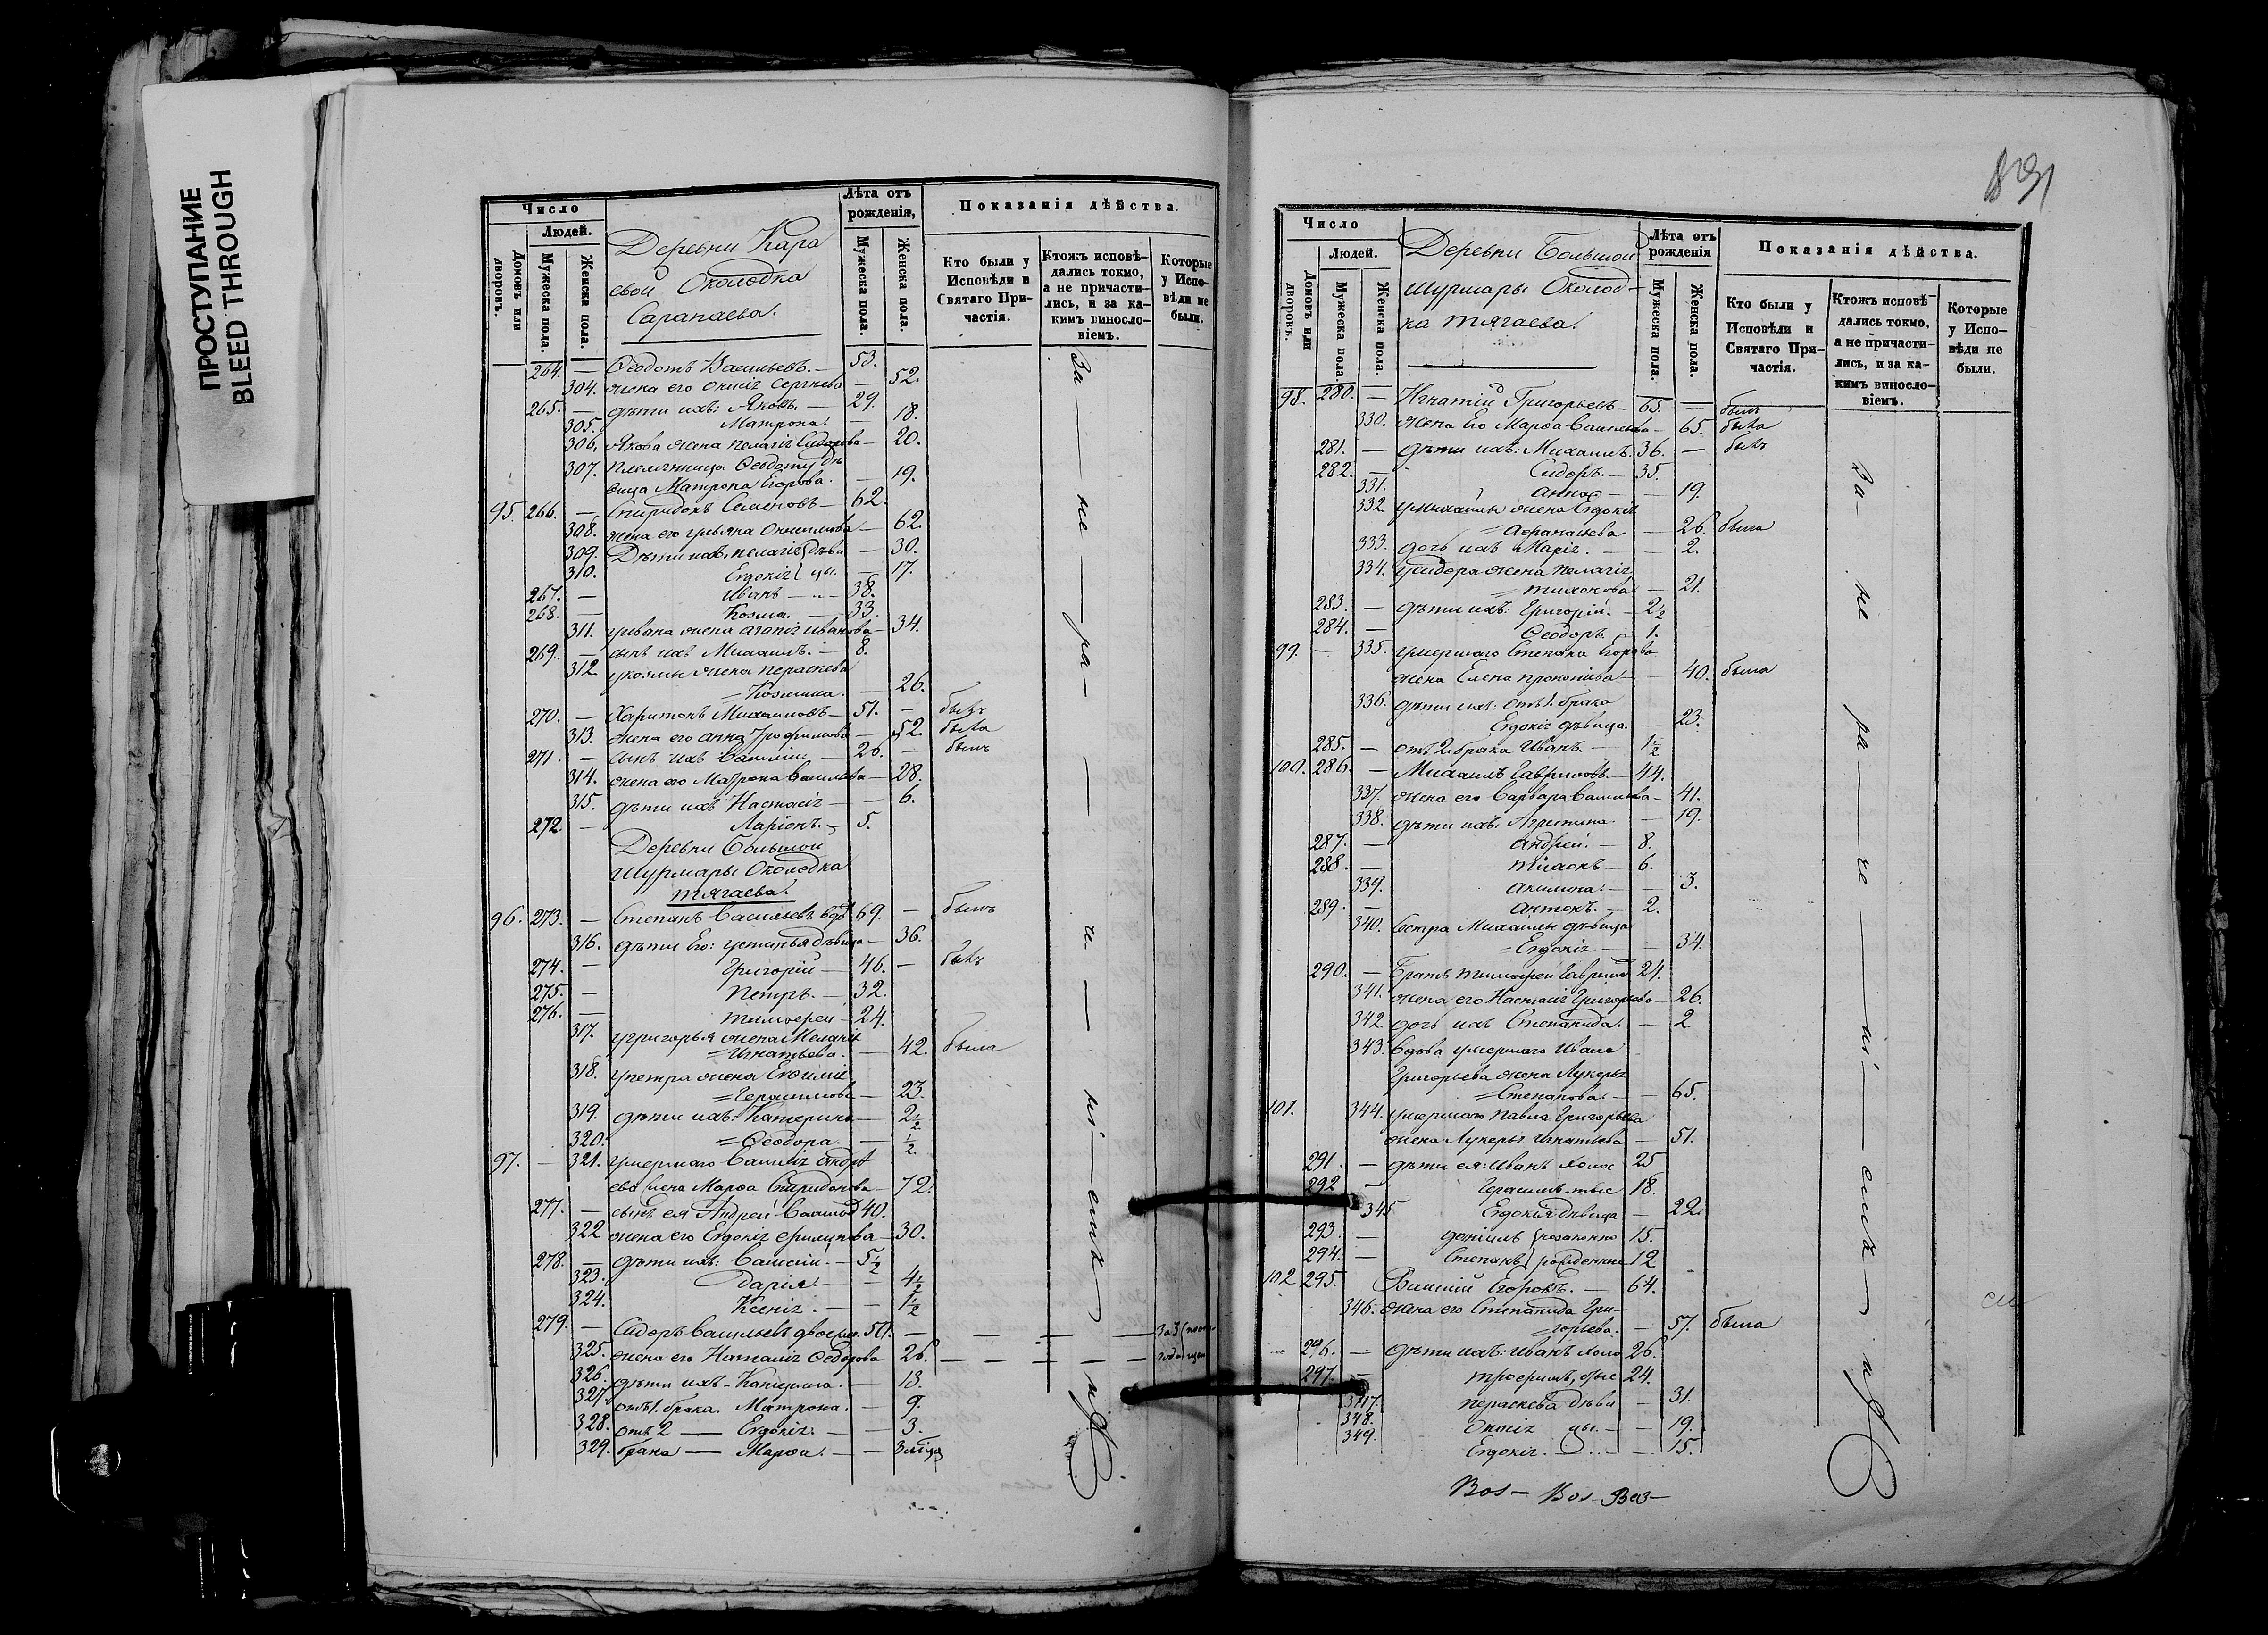 ПРОСТУПАНИЕ
BLEED THROUGH
Число
Людей.
Домовъ или дворовъ.
Мужеска пола.
Женска пола.
Деревни Кара
евой Околодка
Сарапаева.
Лѣта отъ рожденія,
Мужеска пола.
Женска пола.
Показанія дѣйства.
Кто были у Исповѣди и Святаго Причастія.
Ктожъ исповѣдались токмо, а не причастились, и за какимъ винословіемъ.
Которые у Исповѣди не были.
264. — Ѳеодотъ Васильевъ. — 53.
304. жена его Онисія Сергѣева — 52.
265. — дѣти ихъ: Яковъ. — 29.
305. Матрона. — 18.
306. Якова жена Пелагія Сидорова — 20.
307. Племянница Ѳеодоту дѣ
вица Матрона Егорова. — 19.
95. 266. — Спиридонъ Семеновъ — 62.
308. жена его Ульяна Онисимова — 62.
309. Дѣти ихъ: Пелагія дѣви — 30.
310. Евдокія цы. — 17.
267. — Иванъ — 38.
268. — Козма. — 33.
311. у Ивана жена Агапія Иванова — 34.
269. — сынъ ихъ Михаилъ. — 8.
312. у Козмы жена Параскева
= Козмина. — 26.
270. — Харитонъ Михаиловъ — 51. — былъ
313. жена его Анна Трофимова — 52. была
271. — сынъ ихъ Василій — 26. — былъ
314. жена его Матрона Васильева — 28.
315. дѣти ихъ Настасія — 6.
272. — Ларіонъ. — 5.
Деревни Большой
Шурмары Околодка
Тягаева.
96. 273. — Степанъ Васильевъ вдов 69. — былъ
316. дѣти Его: Устинья дѣвица — 36.
274. — Григорій — 46. — былъ
275. — Петръ. — 32.
276. — Тимоѳей — 24.
317. у Григорья жена Меланія
= Игнатьева. — 42. была
318. у Петра жена Евфимія
= Герасимова — 23.
319. дѣти ихъ: Катерина — 2½
320. = Ѳеодора. — ½
97. — 321. умершаго Василія Андрѣ
ева жена Марѳа Спиридонова — 72.
277. — сынъ ея Андрей Васильев 40.
322 жена его Евдокія Филипова — 30.
278. — дѣти ихъ: Василій. — 5½
323. Дарія. — 4½
324. Ксенія. — 1½
279. — Сидоръ Васильевъ двоежен. 50. — За 3
325. жена его Наталія Ѳедорова 26. — года
326. дѣти ихъ — Катерина. — 13.
327. отъ 1. брака. Матрона. — 9.
328. отъ 2 — Евдокія. — 3.
329. брака — Марѳа. — 3 мѣсяц
За — не — ра — — че — ні — емъ
831
Число
Людей.
Домовъ или дворовъ.
Мужеска пола.
Женска пола.
Деревни Большой
Шурмары Околод-
ка Тягаева.
Лѣта отъ рожденія
Мужеска пола.
Женска пола.
Показанія дѣйства.
Кто были у Исповѣди и Святаго Причастія.
Ктожъ исповѣдались токмо, а не причастились, и за какимъ винословіемъ.
Которые у Исповѣди не были.
98. 280. — Игнатій Григорьевъ — 65. — былъ
330. жена Его Марѳа Васильева — 65. была
281. — дѣти ихъ: Михаилъ. 36. — былъ
282. — Сидоръ. — 35.
331. Анна — 19.
332. у Михаилы жена Евдокія
= Аѳанасьева — 26. была
333. дочь ихъ Марія. — 2.
334. у Сидора жена Пелагія
= Тихонова — 21.
283. — дѣти ихъ: Григорій. — 2½
284. — Ѳеодоръ — 1.
99. — 335. умершаго Степана Егорова
жена Елена Прокопьева — 40. была
336. дѣти ихъ: отъ 1. брака
Евдокія дѣвица. — 23.
285. — отъ 2. брака Иванъ. — 1½
100. 286. — Михаилъ Гавриловъ — 44.
337. жена его Варвара Васильева — 41.
338. дѣти ихъ: Агрипина — 19.
287. — Андрей. — 8.
288. — Тихонъ — 6.
339. Акилина. — 3.
289. — Антонъ. — 2.
340. Сестра Михаилы дѣвица
= Евдокія — 34.
290. — Братъ Тимоѳей Гаврилов 24.
341. жена его Настасія Григорьева — 26.
342. дочь ихъ Степанида. — 2.
343. Вдова умершаго Ивана
Григорьева жена Лукерья
= Степанова. — 65.
101. 344. умершаго Павла Григорьева
жена Лукерья Игнатьева — 51.
291. — дѣти ея: Иванъ холос 25
292 — Герасимъ тые 18.
345 Евдокія дѣвица — 22.
293. — Данiилъ незаконно 15.
294. — Степанъ рожденные 12
102 295. Василій Егоровъ. — 64.
346. жена его Степанида Гри-
= горьева. — 57. была
296. — дѣти ихъ: Иванъ холо 26.
297. — Трофимъ, стые 24.
347. Параскева дѣви — 31.
348. Онисія цы. — 19.
349. Евдокія. — 15.
За — не — ра — че — ні — емъ